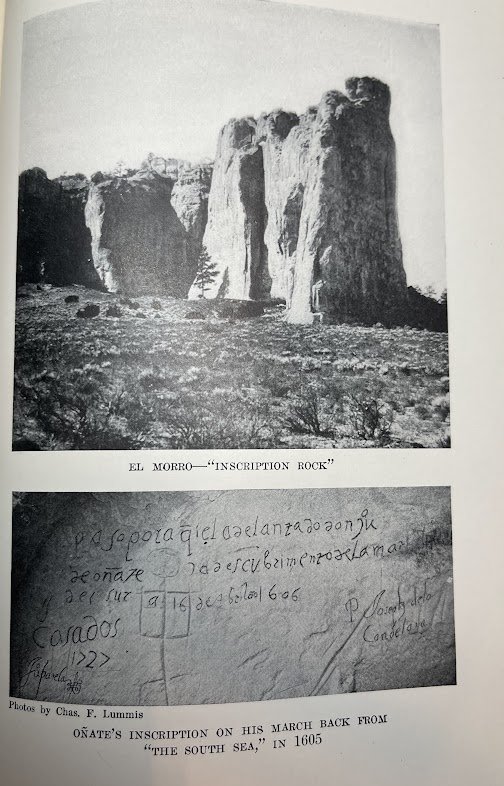 EL MORRO—"INSCRIPTION ROCK"
paso por aq̃i el adelantado don ju
de oñate del descubrimento de la mar
y del sur a 16 de abril 1606
P. Joseph de la
Candelaria
Casados
1727
Photos by Chas. F. Lummis
OÑATE'S INSCRIPTION ON HIS MARCH BACK FROM
"THE SOUTH SEA," IN 1605